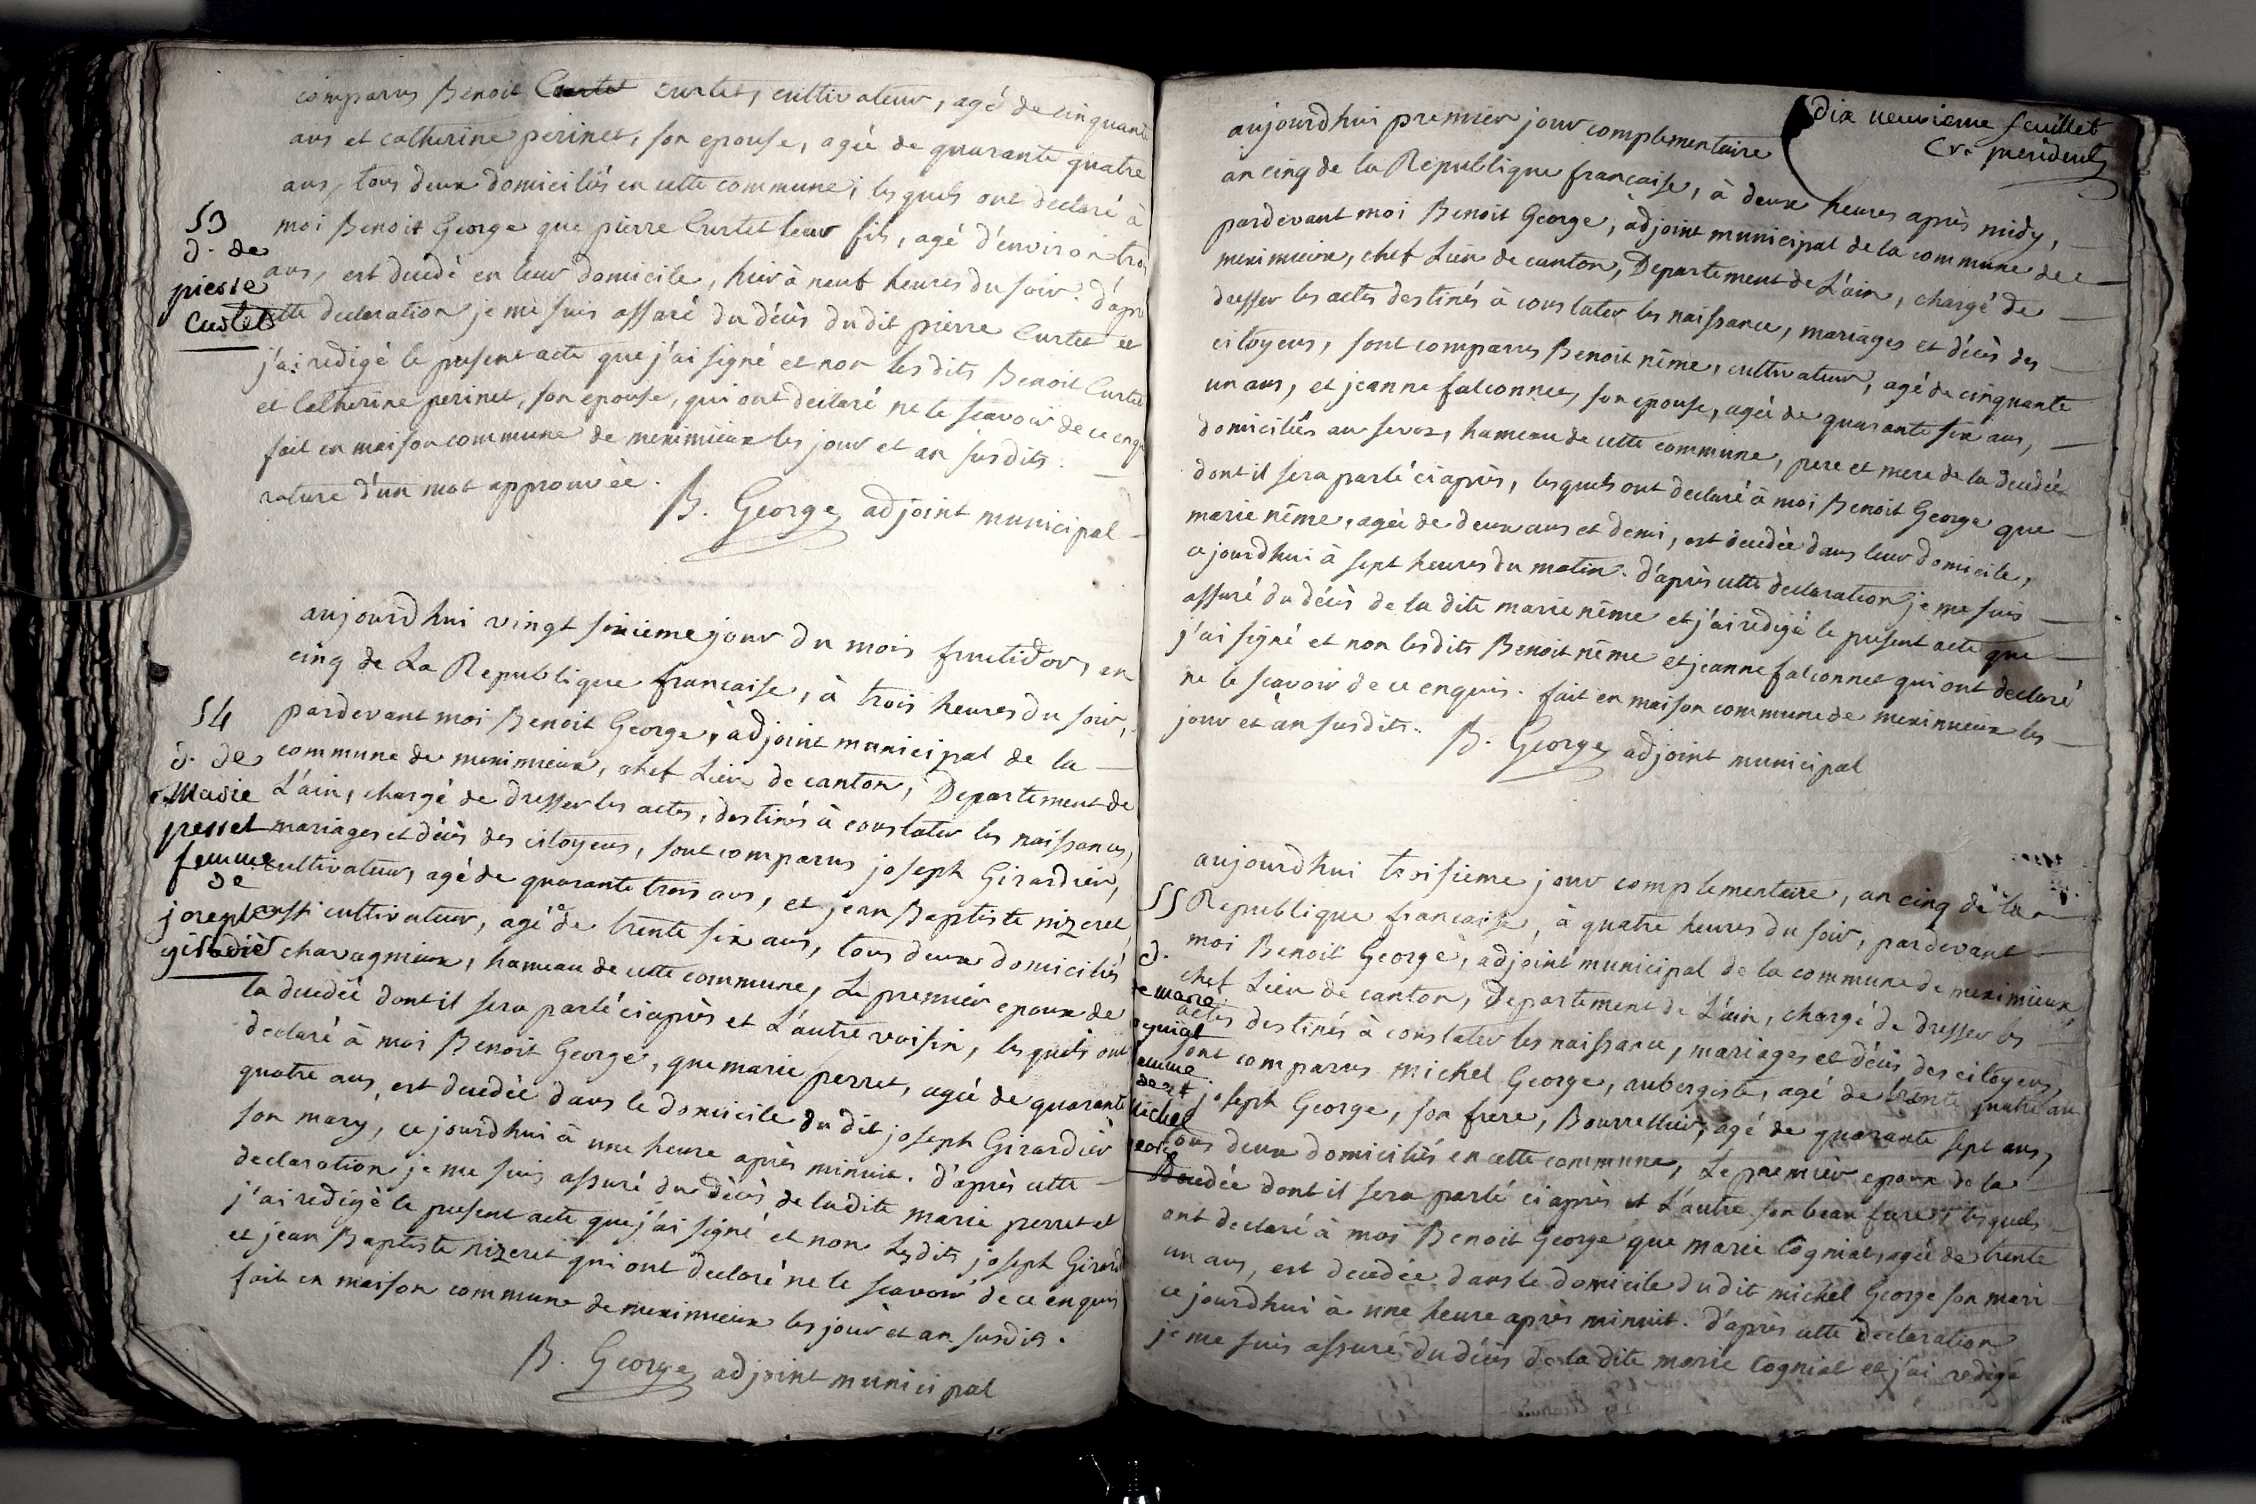 comparus Benoit Curtet curtet, cultivateur, agé de cinquante
ans et catherine perinet, son epouse, agée de quarante quatre
ans, tous deux domiciliés en cette commune, lesquels ont declaré à
moi Benoit George que pierre Curtet leur fils, agé d'environ trois
53
d. de
pierre
Curtet
ans, est decedé en leur domicile, hier à neuf heures du soir. d'après
cette declaration je me suis assuré du décès dudit pierre Curtet et
j'ai redigé le present acte que j'ai signé et non lesdits Benoit Curtet
et Catherine perinet, son epouse, qui ont declaré ne le scavoir de ce enquis
fait en maison commune de meximieux les jour et an susdits.
rature d'un mot approuvée.
B. George adjoint municipal
aujourdhui vingt sixieme jour du mois fructidor, en
cinq de La Republique francaise, à trois heures du soir,
54
d. de
Marie
perret
femme
de
joseph
girardier
pardevant moi Benoit George, adjoint municipal de la
commune de meximieux, chef Lieu de canton, Departement de
L'ain, chargé de dresser les actes, destinés à constater les naissances,
mariages et décès des citoyens, sont comparus joseph Girardier,
cultivateur, agé de quarante trois ans, et jean Baptiste nizeret,
aussi cultivateur, agé de trente six ans, tous deux domiciliés
chavagnieux, hameau de cette commune, Le premier epoux de
la decedée dont il sera parlé ci après et L'autre voisin, lesquels ont
declaré à moi Benoit George, que marie perret, agée de quarante
quatre ans, est decedée dans le domicile du dit joseph Girardier
son mary, ce jourdhui à une heure après minuit. d'après cette
declaration je me suis assuré du décès de ladite marie perret et
j'ai redigé le present acte que j'ai signé et non Lesdits joseph Girard
et jean Baptiste nizeret qui ont declaré ne le scavoir de ce enquis
fait en maison commune de meximieux les jour et an susdits.
B. George adjoint municipal
dix neuvieme feuillet
president
aujourdhui premier jour complementaire
an cinq de la Republique francaise, à deux heures après midy,
pardevant moi Benoit George, adjoint municipal de la commune de
meximieux, chef Lieu de canton, Departement de L'ain, chargé de
dresser les actes destinés à constater les naissance, mariages et décès des
citoyens, sont comparus Benoit nême, cultivateur, agé de cinquante
un ans, et jeanne falconnet, son epouse, agée de quarante six ans,
domiciliés au servoz, hameau de cette commune, pere et mere de la decedée
dont il sera parlé ci après, lesquels ont declaré à moi Benoit George que
marie nême, agée de deux ans et demi, est decedée dans leur domicile,
ce jourdhui à sept heures du matin. d'après cette declaration je me suis
assuré du décès de la dite marie nême et j'ai redigé le present acte que
j'ai signé et non lesdits Benoit nême et jeanne falconnet qui ont declaré
ne le scavoir de ce enquis. fait en maison commune de meximieux les
jour et an susdits.
B. George adjoint municipal
aujourdhui troisieme jour complementaire, an cinq de la
55
d.
de marie
cognial
femme
de
michel
george
Republique francaise, à quatre heures du soir, pardevant
moi Benoit George, adjoint municipal de la commune de meximieux
chef Lieu de canton, Departement de L'ain, chargé de dresser les
actes destinés à constater les naissance, mariages et décès des citoyens,
sont comparus michel George, aubergiste, agé de trente quatre ans
joseph George, son frere, Bourrellier, agé de quarante sept ans,
tous deux domiciliés en cette commune, Le premier epoux de la
decedée dont il sera parlé ci après et L'autre son beau frere, lesquels
ont declaré à moi Benoit George que marie Cognial, agée de trente
un ans, est decedée dans le domicile dudit michel George son mari
ce jourdhui à une heure après minuit. d'après cette declaration
je me suis assuré du décès de la dite marie Cognial et j'ai redigé